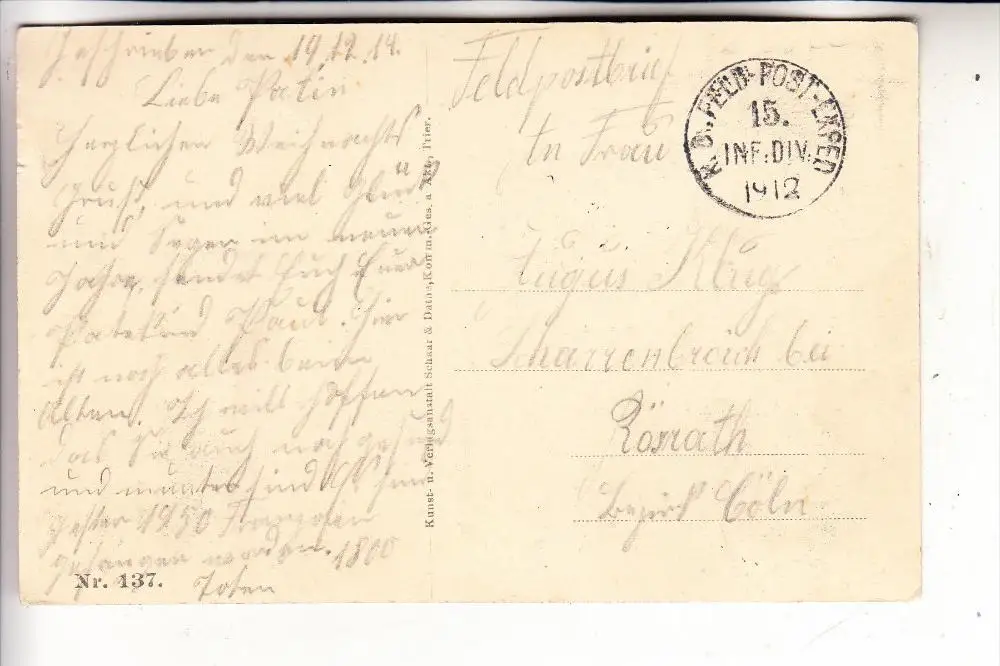 Geschrieben den 19.12.14.
Liebe Patin
Herzlichen Weihnachts
Gruß, und viel Glück
und Segen im neuen
Jahre, sendet Euch Euer
Patekind Paul. Hier
ist noch alles beim
Alten. Ich will hoffen
das Sie auch noch gesund
und munter sind. Es sind
gester 1250 Franzosen
gefangen worden. 1800
Toten
Nr. 137.
Kunst- u. Verlagsanstalt Schaar & Dathe, Komm.-Ges. a. Akt., Trier.
Feldpostbrief
K. D. FELD-POST-EXPED
15.
INF. DIV.
1912
An Frau
Klug
Scharrenbroich bei
Rösrath
Bezirk Cöln